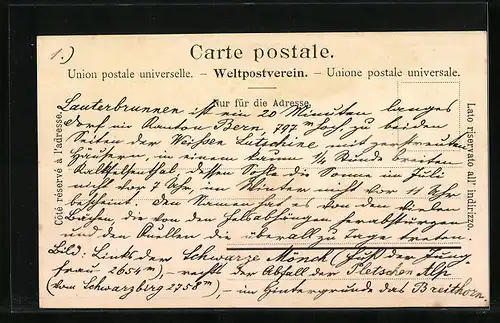 1.)
Carte postale.
Union postale universelle. – Weltpostverein. – Unione postale universale.
Nur für die Adresse.
Côté réservé à l'adresse.
Lato riservato all' indirizzo.
Lauterbrunnen ist ein 20 Minuten langes
Dorf im Kanton Bern, 797 m hoch zu beiden
Seiten der Weißen Lütschine mit zerstreuten
Häusern, in einem kaum 1/4 Stunde breiten
Kalkfelsenthal, dessen Sohle die Sonne im Juli
nicht vor 7 Uhr, im Winter nicht vor 11 Uhr
bescheint. Den Namen hat es von den vielen
Bächen die von den Felsabhängen herabstürzen
und den Quellen die überall zu Tage treten.
Bild: Links der Schwarze Mönch (Fuß der Jung-
frau 2654 m), – rechts der Abfall der Pletschen Alp
(vom Schwarzbirg 2758 m), – im Hintergrunde das Breithorn.